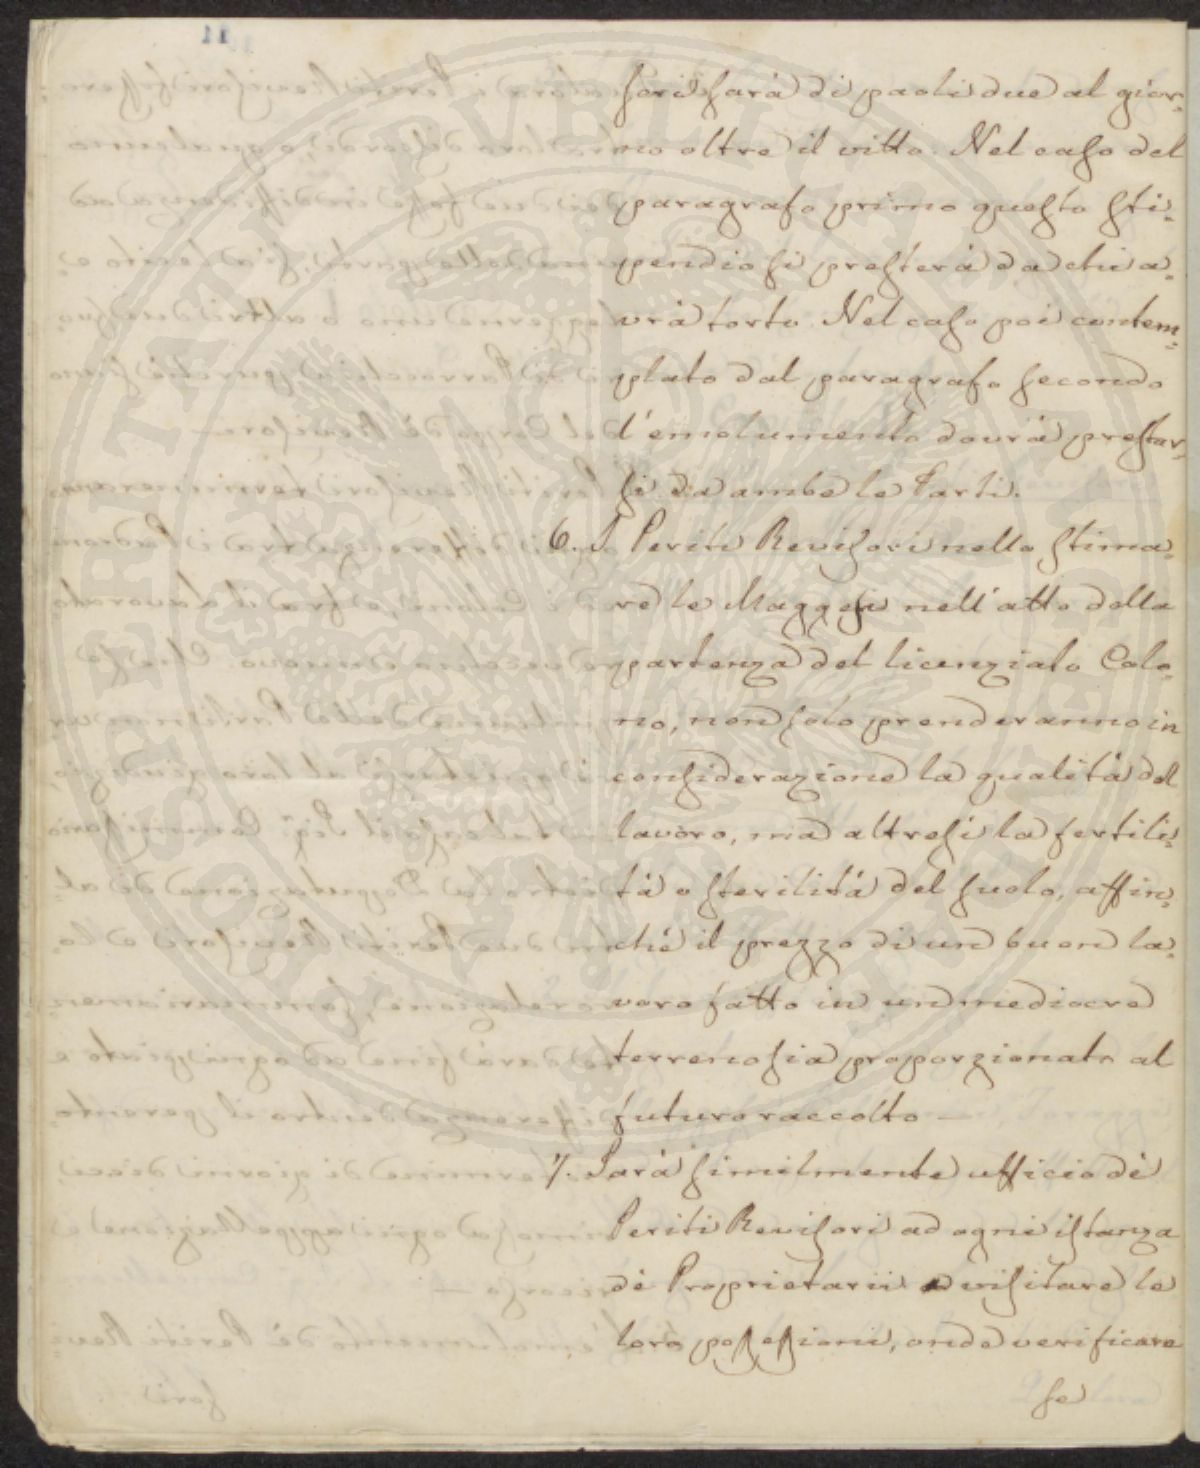 sori sarà di paoli due al gior-
no oltre il vitto. Nel caso del
paragrafo primo questo sti-
pendio si presterà da chi a-
vrà torto. Nel caso poi contem-
plato dal paragrafo secondo
l'emolumento dovrà prestar-
si da ambe le Parti.
6. I Periti Revisori nello stima-
re le Maggesi nell'atto della
partenza del licenziato Colo-
no, non solo prenderanno in
considerazione la qualità del
lavoro, ma altresì la fertili-
tà o sterilità del suolo, affin-
chè il prezzo di un buon la-
voro fatto in un mediocre
terreno sia proporzionato al
futuro raccolto —
7. Sarà similmente ufficio dè
Periti Revisori ad ogni istanza
dè Proprietarii visitare le
loro possessioni, onde verificare
se